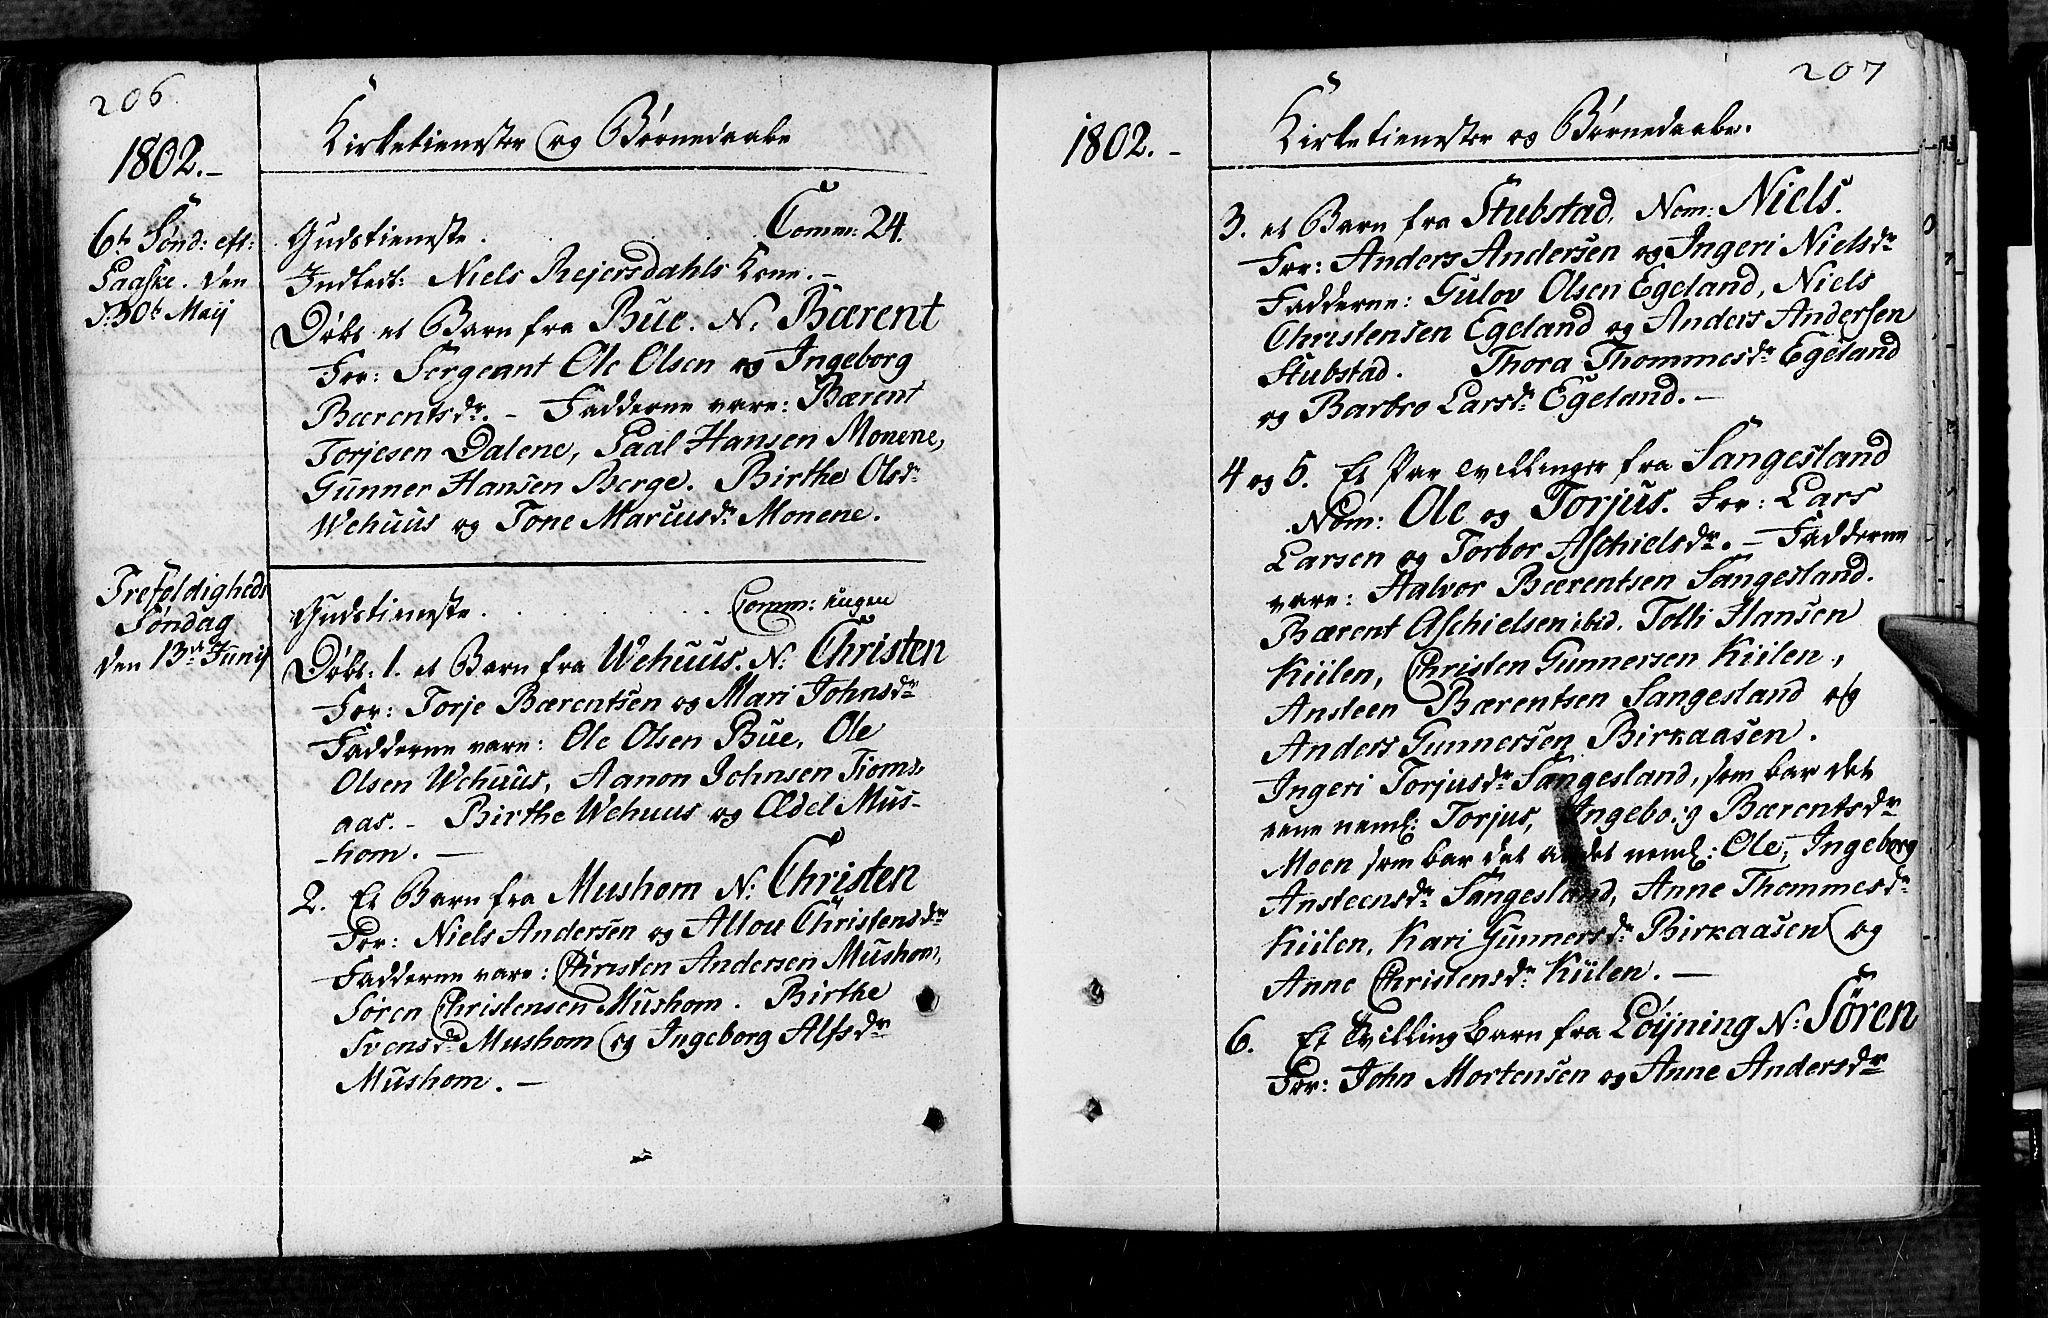 206
1802.-
Kirketienester og Børnedaabe
6te Sønd: eft:
Paaske. den
30te Maij
Gudstieneste. Comm: 24.
Indledt: Niels Rejersdahls Kone. -
Døbt et Barn fra Bue. N: Bærent
For: Sergeant Ole Olsen og Ingeborg
Bærentsdr. - Fadderne vare: Bærent
Torjesen Dalene, Paal Hansen Monene,
Gunner Hansen Berge. Birthe Olsdr
Wehuus og Tone Marcusdr Monene.
Trefoldigheds
Søndag
den 13de Junij
Gudstieneste. . . . . . . Comm: ingen
Døbt: 1. et Barn fra Wehuus. N: Christen
For: Torje Bærentsen og Mari Johnsdr
Fadderne vare: Ole Olsen Bue, Ole
Olsen Wehuus, Aanon Johnsen Tioms-
aas. - Birthe Wehuus og Ædel Mus-
-hom. -
2. Et Barn fra Mushom N: Christen
For: Niels Andersen og Allou Christensdr
Fadderne vare: Christen Andersen Mushom,
Søren Christensen Mushom. Birthe
Svensdr Mushom og Ingeborg Alfsdr
Mushom. -
207
1802. -
Kirketienester og Børnedaabe.
3. et Barn fra Stubstad. Nom: Niels.
For: Anders Andersen og Ingeri Nielsdr
Fadderne: Gulov Olsen Egeland, Niels
Christensen Egeland og Anders Andersen
Stubstad. Thora Thommesdr Egeland
og Barbro Larsdr Egeland. -
4 og 5. Et Par Tvillinger fra Sangesland
Nom: Ole og Torjus. For: Lars
Larsen og Torbor Aschielsdr. - Fadderne
vare: Halvor Bærentsen Sangesland.
Bærent Aschielsen ibid. Tolli Hansen
Kiilen, Christen Gunnersen Kiilen,
Ansteen Bærentsen Sangesland og
Anders Gunnersen Birkaasen.
Ingeri Torjusdr Sangesland, som bar det
eene neml: Torjus, Ingeborg Bærentsdr
Moen som bar det andet neml: Ole, Ingeborg
Ansteensdr Sangesland, Anne Thommesdr
Kiilen, Kari Gunnersdr Birkaasen og
Anne Christensdr Kiilen. -
6. Et Tvilling Barn fra Løyning N: Søren
For: John Mortensen og Anne Andersdr